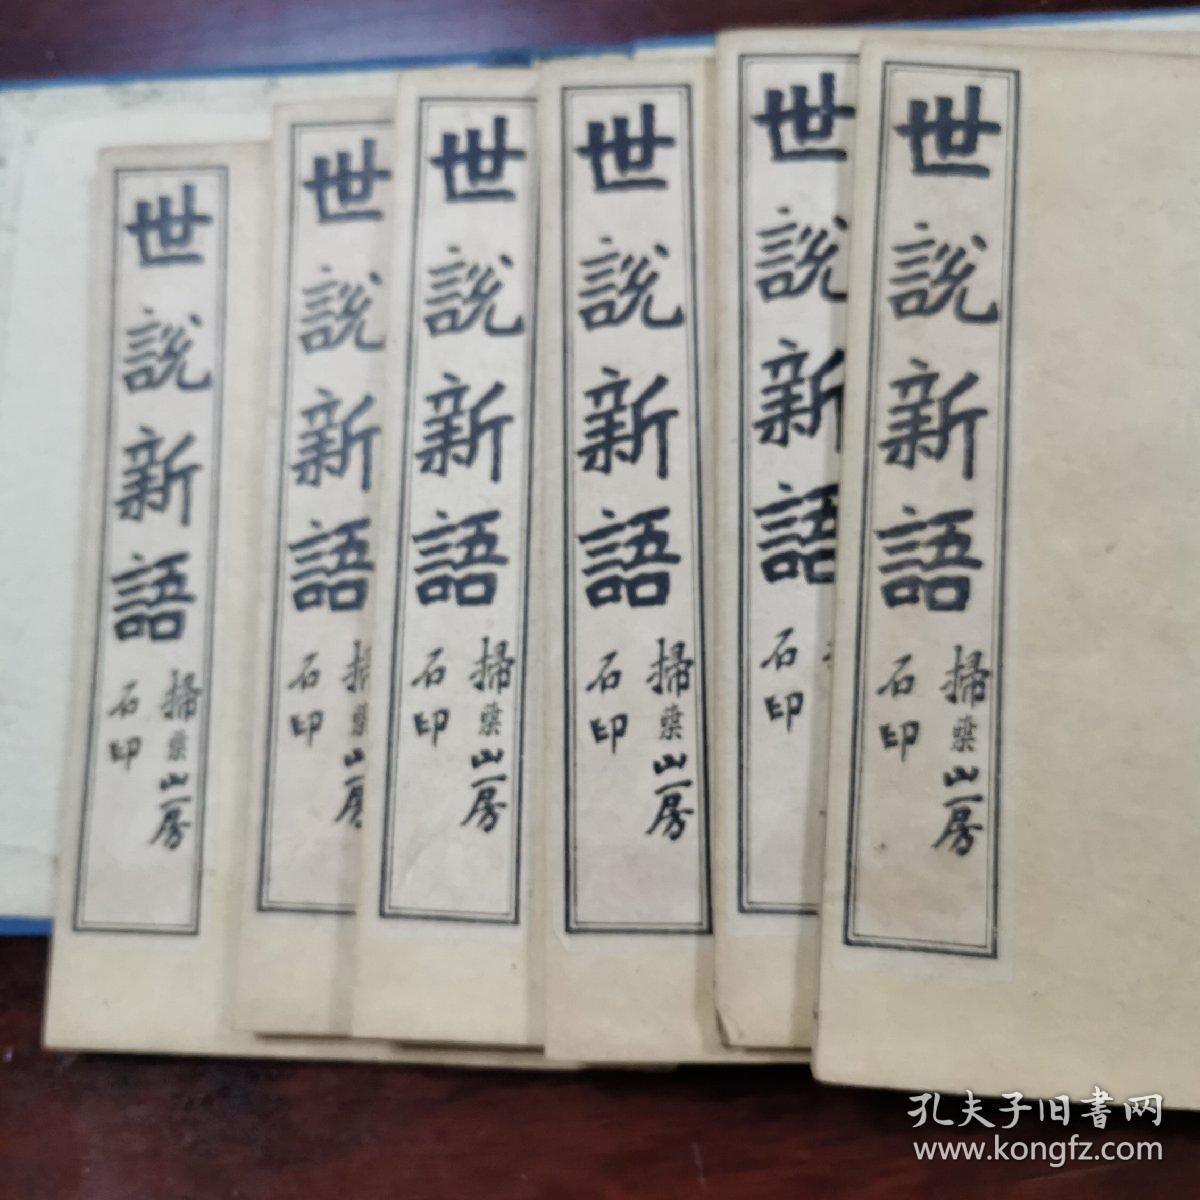 世說新語
掃葉山房
石印
世說新語
掃葉山房
石印
世說新語
掃葉山房
石印
世說新語
掃葉山房
石印
世說新語
石印
世說新語
掃葉山房
石印
孔夫子旧書网
www.kongfz.com